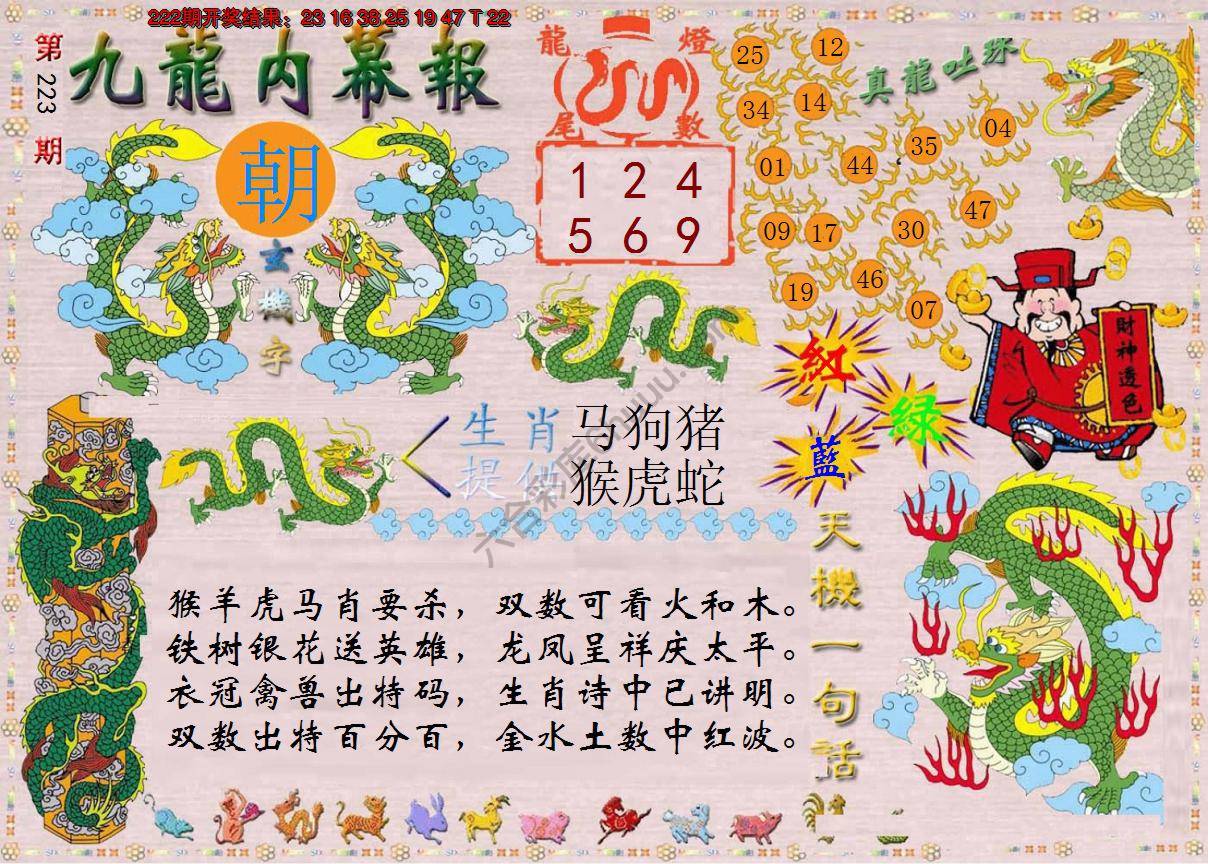 222期开奖结果：23 16 38 25 19 47 T 22
第223期
九龍内幕報
朝
玄機字
龍燈
尾數
1 2 4
5 6 9
真龍吐珠
25 12
34 14
01 44 35 04
09 17 30 47
19 46 07
紅
綠
藍
財神透色
生肖 马狗猪
提供 猴虎蛇
天機一句話
猴羊虎马肖要杀，双数可看火和木。
铁树银花送英雄，龙凤呈祥庆太平。
衣冠禽兽出特码，生肖诗中已讲明。
双数出特百分百，金水土数中红波。